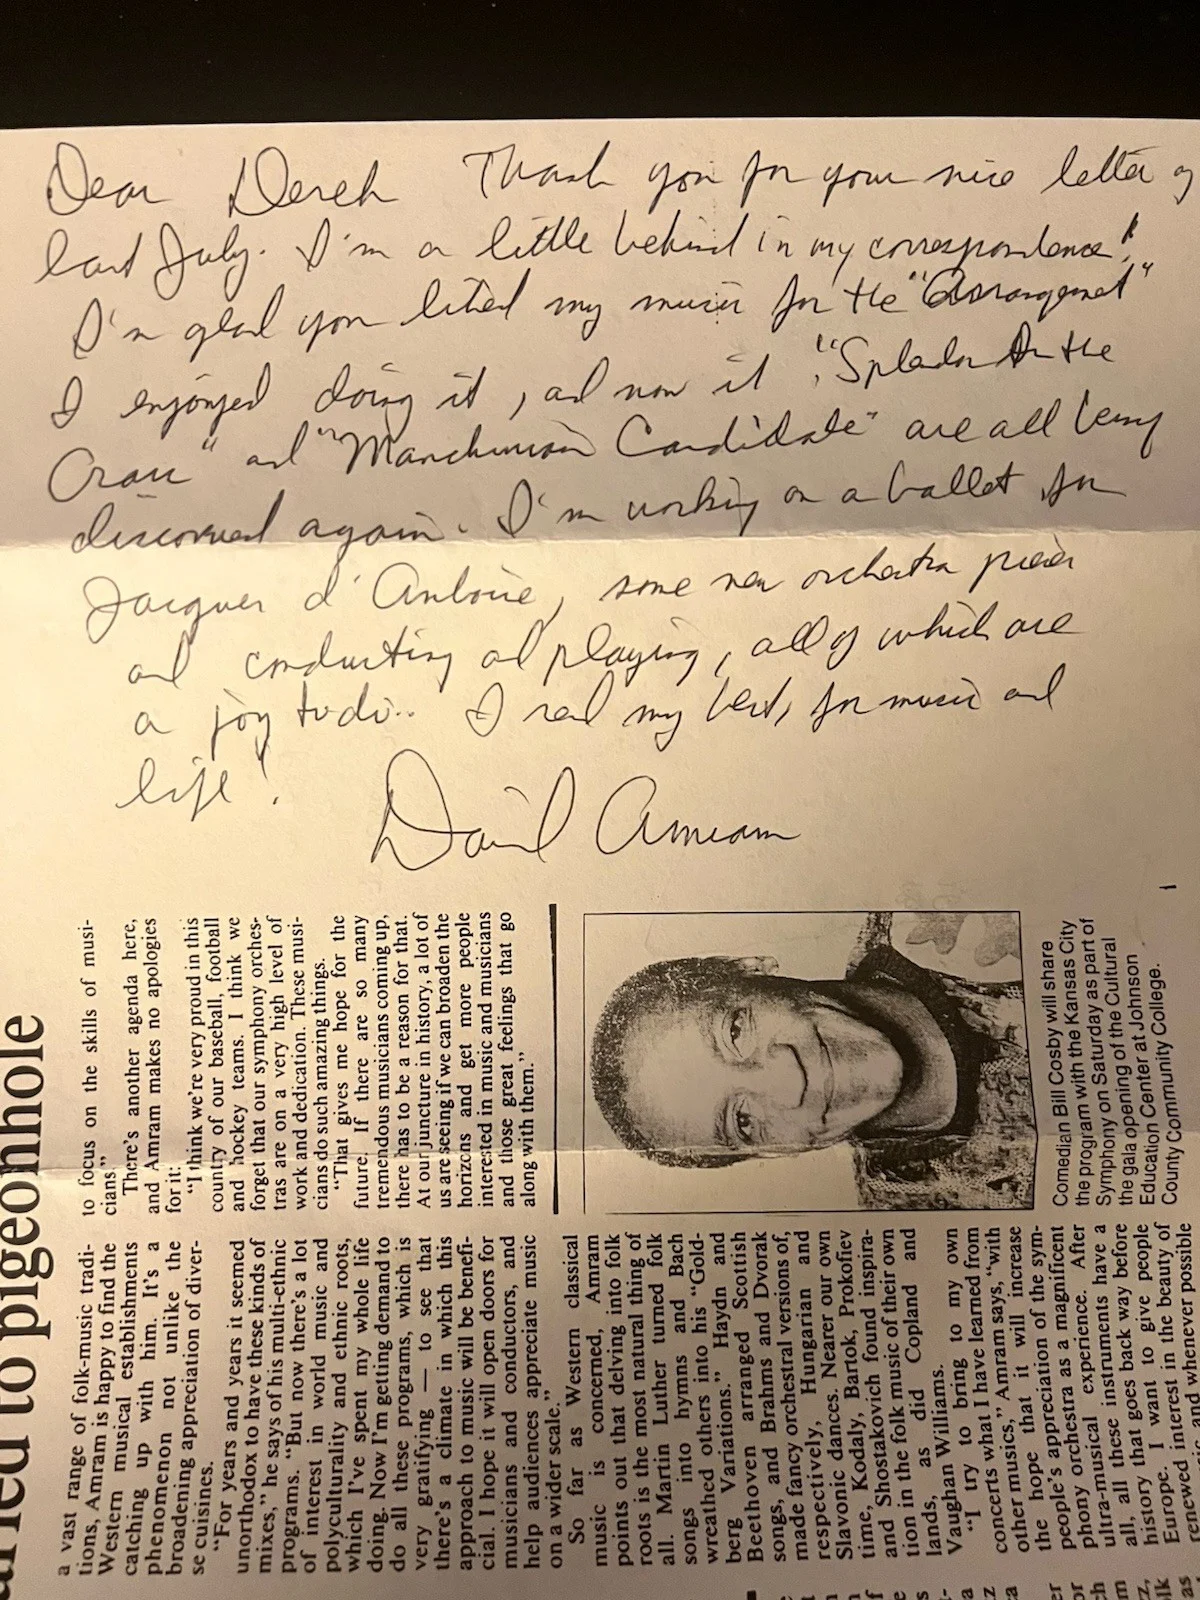 Dear Derek Thank you for your nice letter of
last July. I'm a little behind in my correspondence!
I'm glad you liked my music for the "Arrangement"
I enjoyed doing it, and now it "Splendor In the
Grass" and "Manchurian Candidate" are all being
discovered again. I'm working on a ballet for
Jacques d'Amboise, some new orchestra pieces
and conducting and playing, all of which are
a joy to do.. I send my best, for music and
life!
David Amram
to pigeonhole
a vast range of folk-music tradi-
tions, Amram is happy to find the
Western musical establishments
catching up with him. It's a
phenomenon not unlike the
broadening appreciation of diver-
se cuisines.
"For years and years it seemed
unorthodox to have these kinds of
mixes," he says of his multi-ethnic
programs. "But now there's a lot
of interest in world music and
polyculturality and ethnic roots,
which I've spent my whole life
doing. Now I'm getting demand to
do all these programs, which is
very gratifying — to see that
there's a climate in which this
approach to music will be benefi-
cial. I hope it will open doors for
musicians and conductors, and
help audiences appreciate music
on a wider scale."
So far as Western classical
music is concerned, Amram
points out that delving into folk
roots is the most natural thing of
all. Martin Luther turned folk
songs into hymns and Bach
wreathed others into his "Gold-
berg Variations." Haydn and
Beethoven arranged Scottish
songs, and Brahms and Dvorak
made fancy orchestral versions of,
respectively, Hungarian and
Slavonic dances. Nearer our own
time, Kodaly, Bartok, Prokofiev
and Shostakovich found inspira-
tion in the folk music of their own
lands, as did Copland and
Vaughan Williams.
"I try to bring to my own
concerts what I have learned from
other musics," Amram says, "with
the hope that it will increase
people's appreciation of the sym-
phony orchestra as a magnificent
ultra-musical experience. After
all, all these instruments have a
history that goes back way before
Europe. I want to give people
interest in the beauty of
and whenever possible
to focus on the skills of musi-
cians."
There's another agenda here,
and Amram makes no apologies
for it:
"I think we're very proud in this
country of our baseball, football
and hockey teams. I think we
forget that our symphony orches-
tras are on a very high level of
work and dedication. These musi-
cians do such amazing things.
"That gives me hope for the
future. If there are so many
tremendous musicians coming up,
there has to be a reason for that.
At our juncture in history, a lot of
us are seeing if we can broaden the
horizons and get more people
interested in music and musicians
and those great feelings that go
along with them."
Comedian Bill Cosby will share
the program with the Kansas City
Symphony on Saturday as part of
the gala opening of the Cultural
Education Center at Johnson
County Community College.